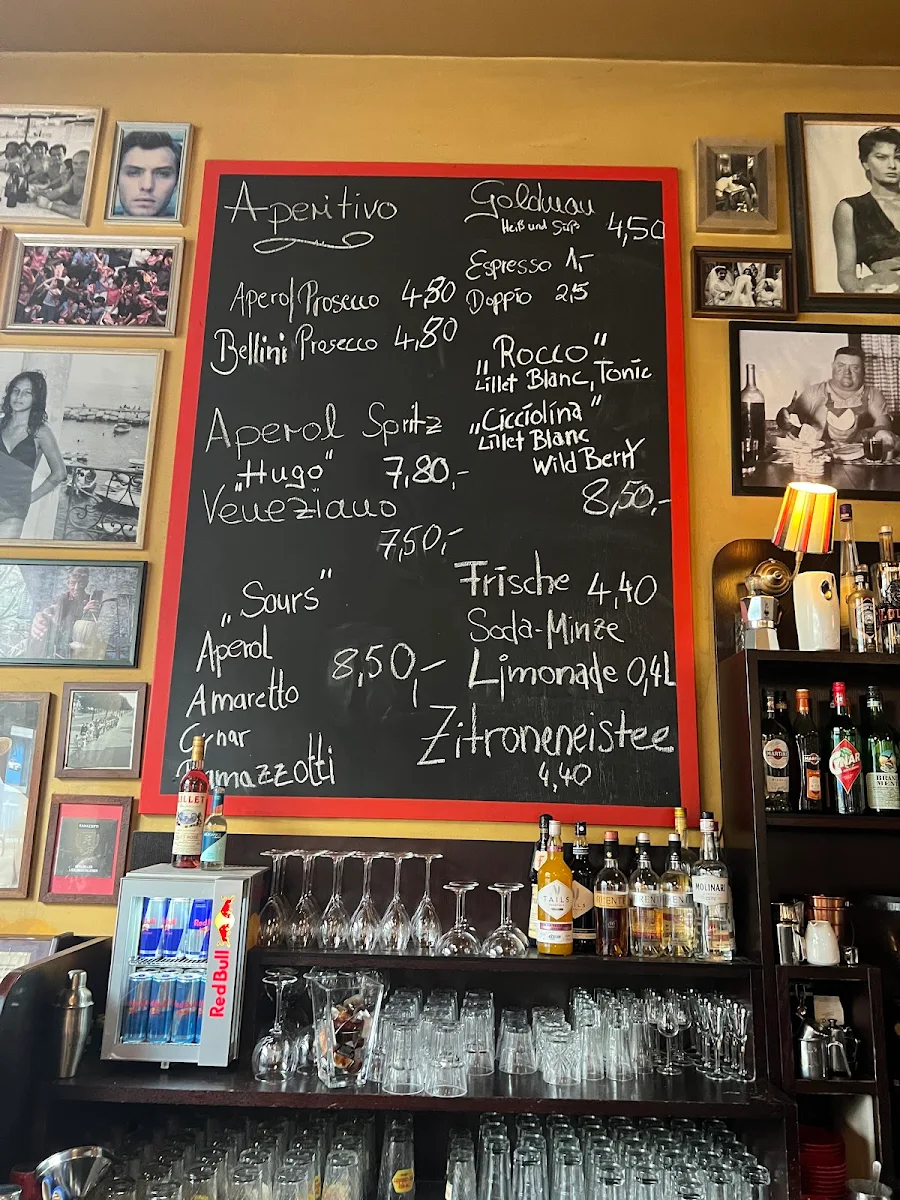 Aperitivo
Aperol Prosecco 4,80
Bellini Prosecco 4,80
Aperol Spritz
„Hugo" 7,80,-
Veneziano
7,50,-
„Sours"
Aperol
8,50,-
Amaretto
Cynar
Ramazzotti
Goldmau
Heiß und Süß 4,50
Espresso 1,-
Doppio 2,5
„Rocco"
Lillet Blanc, Tonic
„Cicciolina"
Lillet Blanc
Wild Berry
8,50,-
Frische 4,40
Soda-Minze
Limonade 0,4L
Zitroneneistee
4,40
LILLET
Red Bull
TAILS
MOLINARI
MARTINI
CYNAR